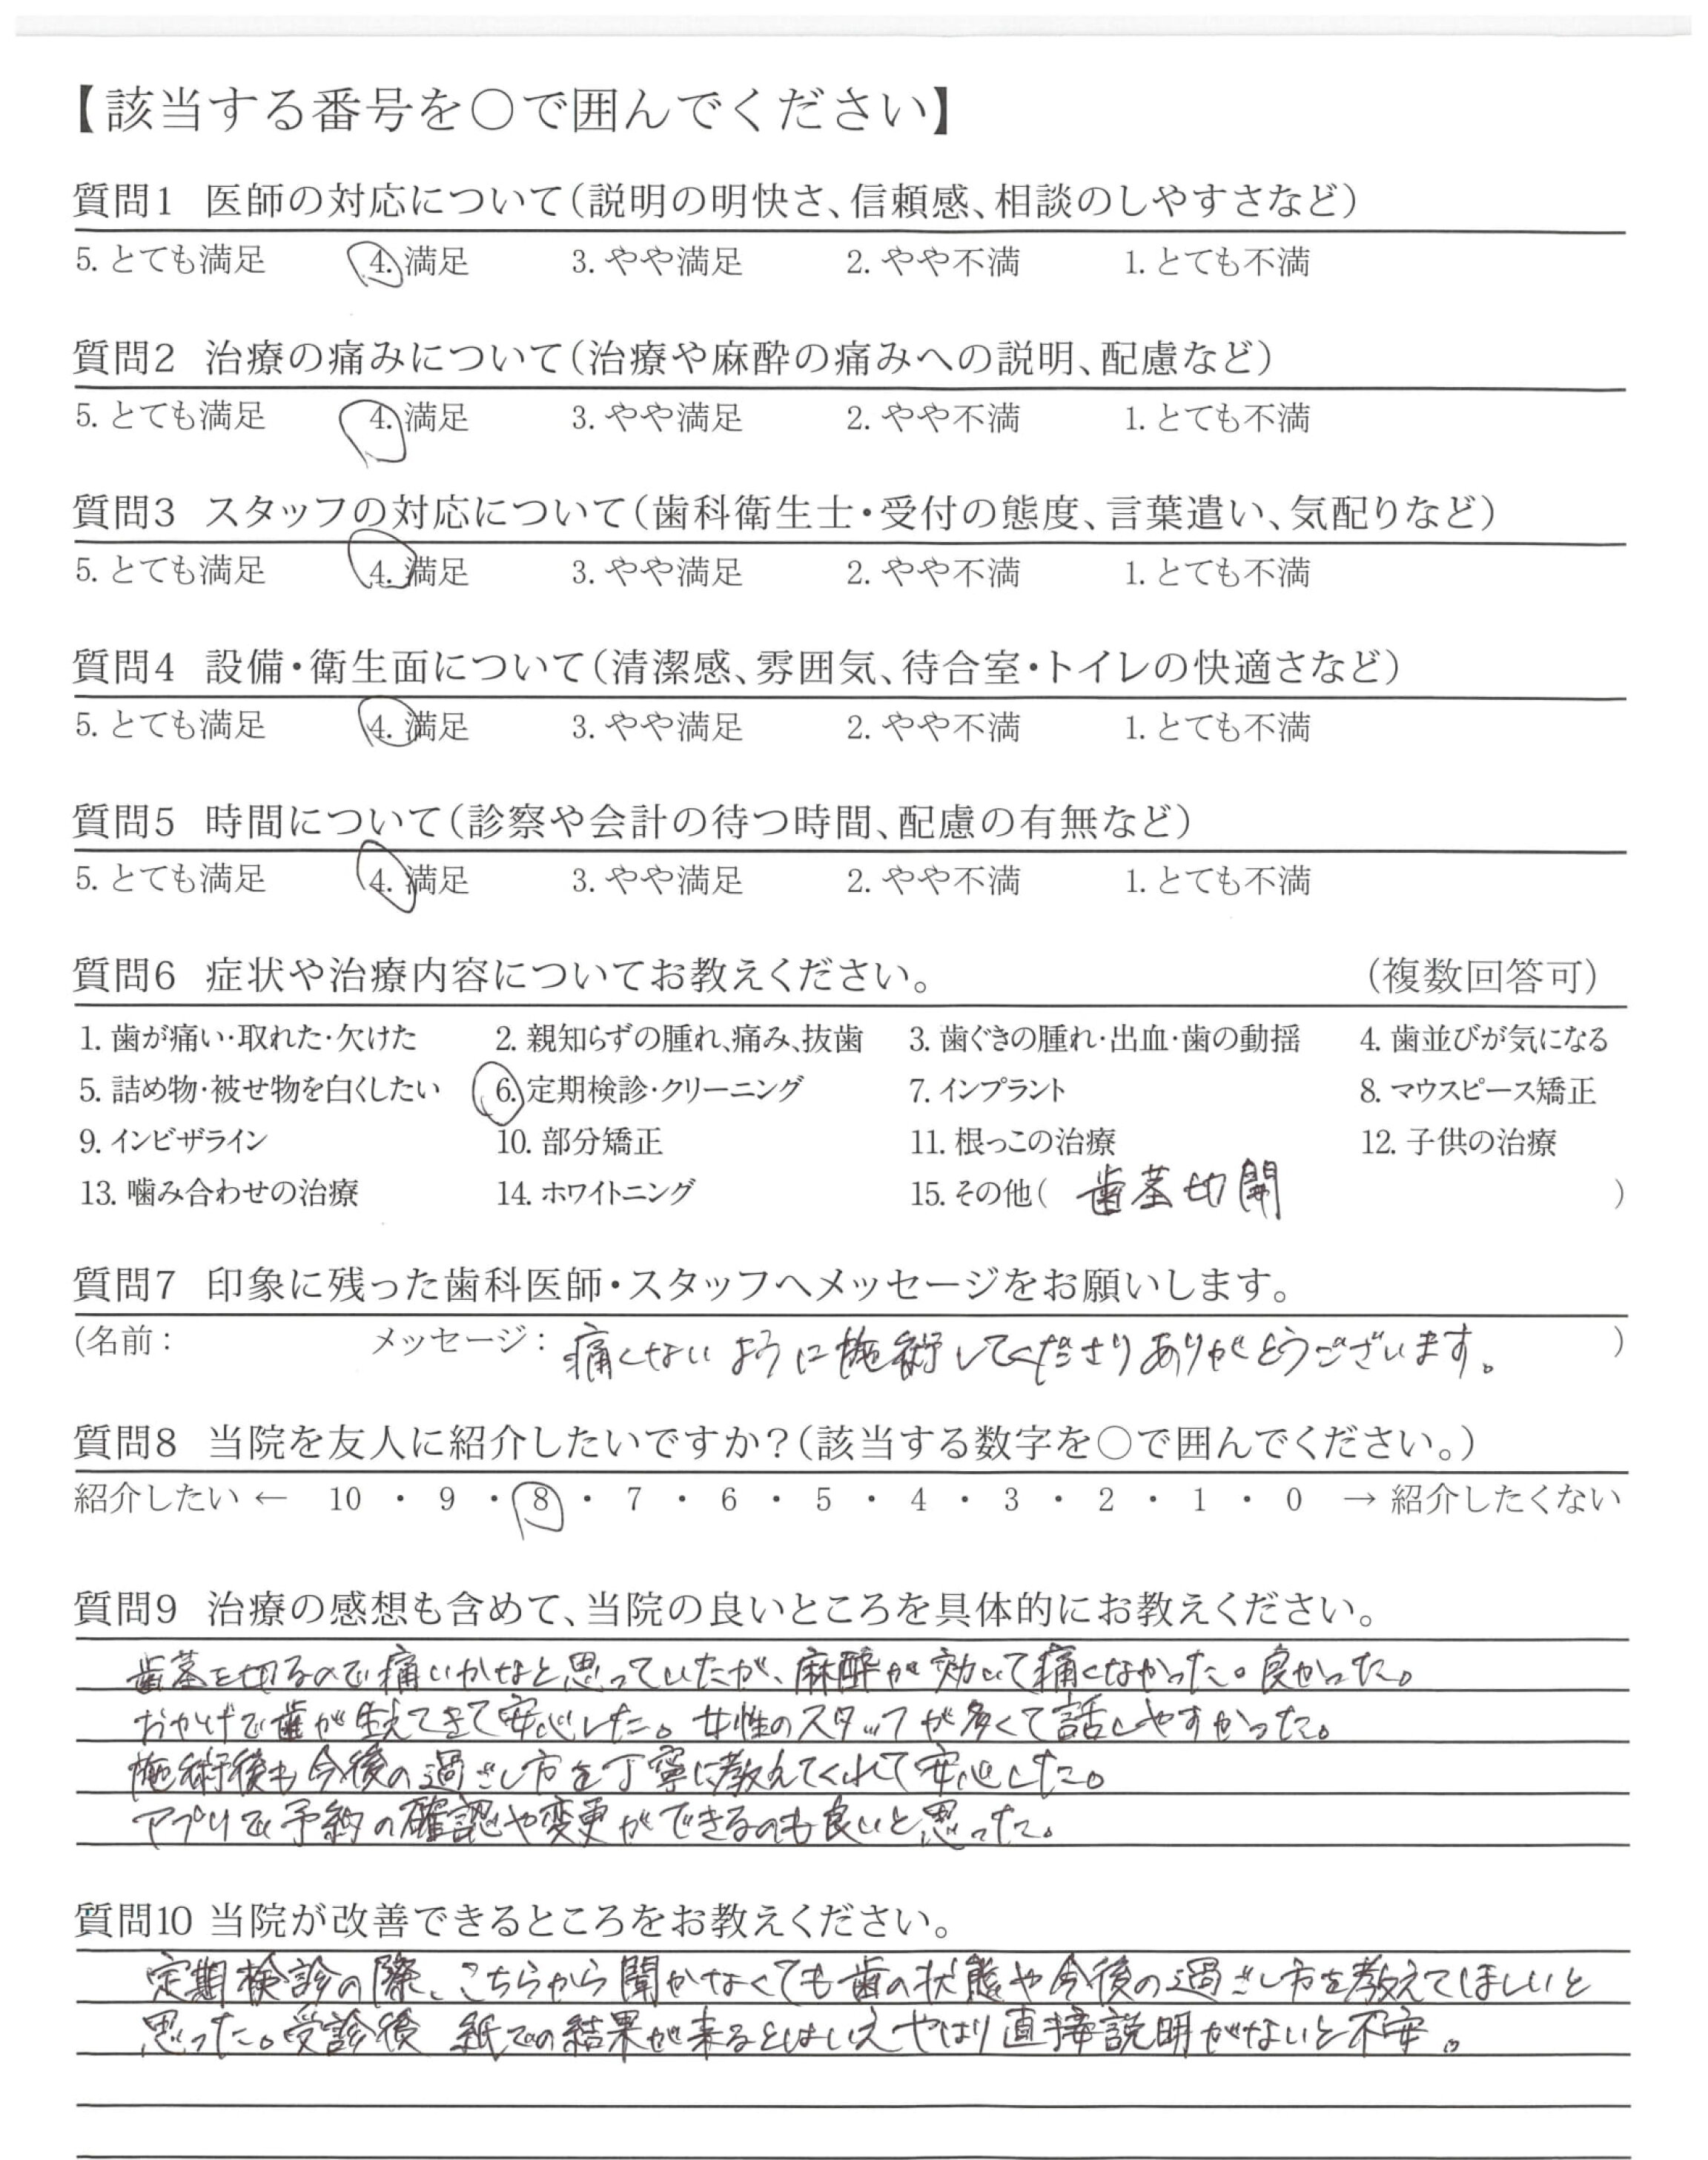 【該当する番号を○で囲んでください】
質問1 医師の対応について（説明の明快さ、信頼感、相談のしやすさなど）
5. とても満足 4. 満足 3. やや満足 2. やや不満 1. とても不満
質問2 治療の痛みについて（治療や麻酔の痛みへの説明、配慮など）
5. とても満足 4. 満足 3. やや満足 2. やや不満 1. とても不満
質問3 スタッフの対応について（歯科衛生士・受付の態度、言葉遣い、気配りなど）
5. とても満足 4. 満足 3. やや満足 2. やや不満 1. とても不満
質問4 設備・衛生面について（清潔感、雰囲気、待合室・トイレの快適さなど）
5. とても満足 4. 満足 3. やや満足 2. やや不満 1. とても不満
質問5 時間について（診察や会計の待つ時間、配慮の有無など）
5. とても満足 4. 満足 3. やや満足 2. やや不満 1. とても不満
質問6 症状や治療内容についてお教えください。 （複数回答可）
1. 歯が痛い・取れた・欠けた 2. 親知らずの腫れ、痛み、抜歯 3. 歯ぐきの腫れ・出血・歯の動揺 4. 歯並びが気になる
5. 詰め物・被せ物を白くしたい 6. 定期検診・クリーニング 7. インプラント 8. マウスピース矯正
9. インビザライン 10. 部分矯正 11. 根っこの治療 12. 子供の治療
13. 噛み合わせの治療 14. ホワイトニング 15. その他（ 歯茎切開 ）
質問7 印象に残った歯科医師・スタッフへメッセージをお願いします。
(名前： メッセージ： 痛くないように施術してくださりありがとうございます。 ）
質問8 当院を友人に紹介したいですか？（該当する数字を○で囲んでください。）
紹介したい ← 10 ・ 9 ・ 8 ・ 7 ・ 6 ・ 5 ・ 4 ・ 3 ・ 2 ・ 1 ・ 0 → 紹介したくない
質問9 治療の感想も含めて、当院の良いところを具体的にお教えください。
歯茎を切るので痛いかなと思っていたが、麻酔が効いて痛くなかった。良かった。
おかげで歯が生えてきて安心した。女性のスタッフが多くて話しやすかった。
施術後も今後の過ごし方を丁寧に教えてくれて安心した。
アプリで予約の確認や変更ができるのも良いと思った。
質問10 当院が改善できるところをお教えください。
定期検診の際、こちらから聞かなくても歯の状態や今後の過ごし方を教えてほしいと
思った。受診後 紙での結果が来るとはいえ やはり直接説明がないと不安。